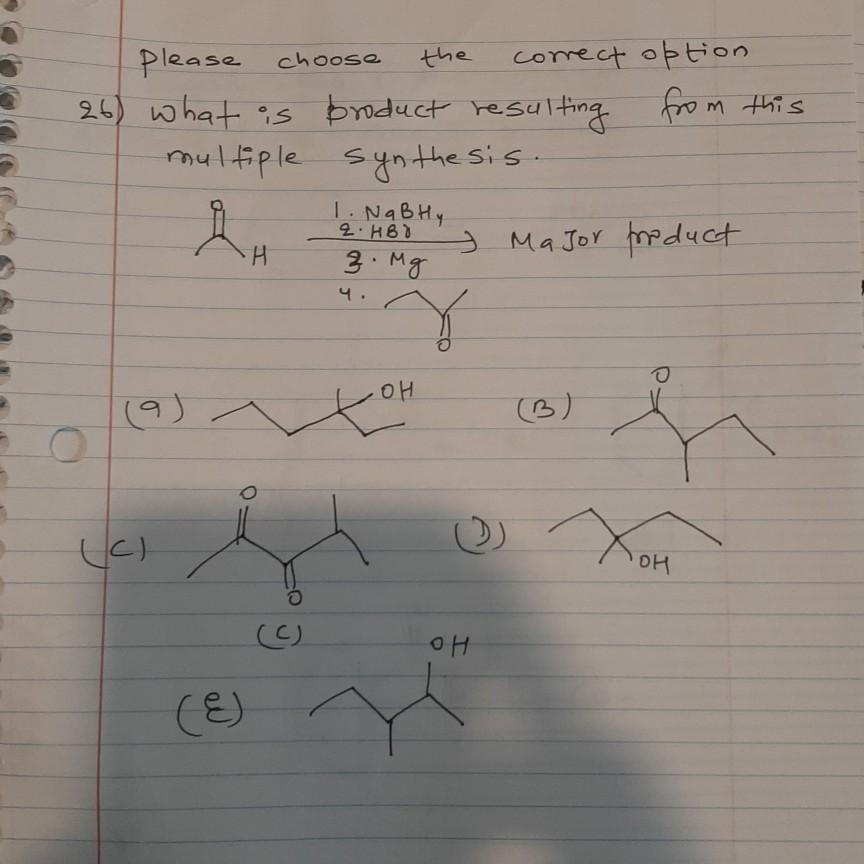 please choose the correct option
26) what is product resulting from this
multiple synthesis.
O
H
1. NaBH4
2. HBr
3. Mg
4.
O
Major product
(a)
OH
(B)
O
(C)
O
O
(D)
OH
(C)
(E)
OH